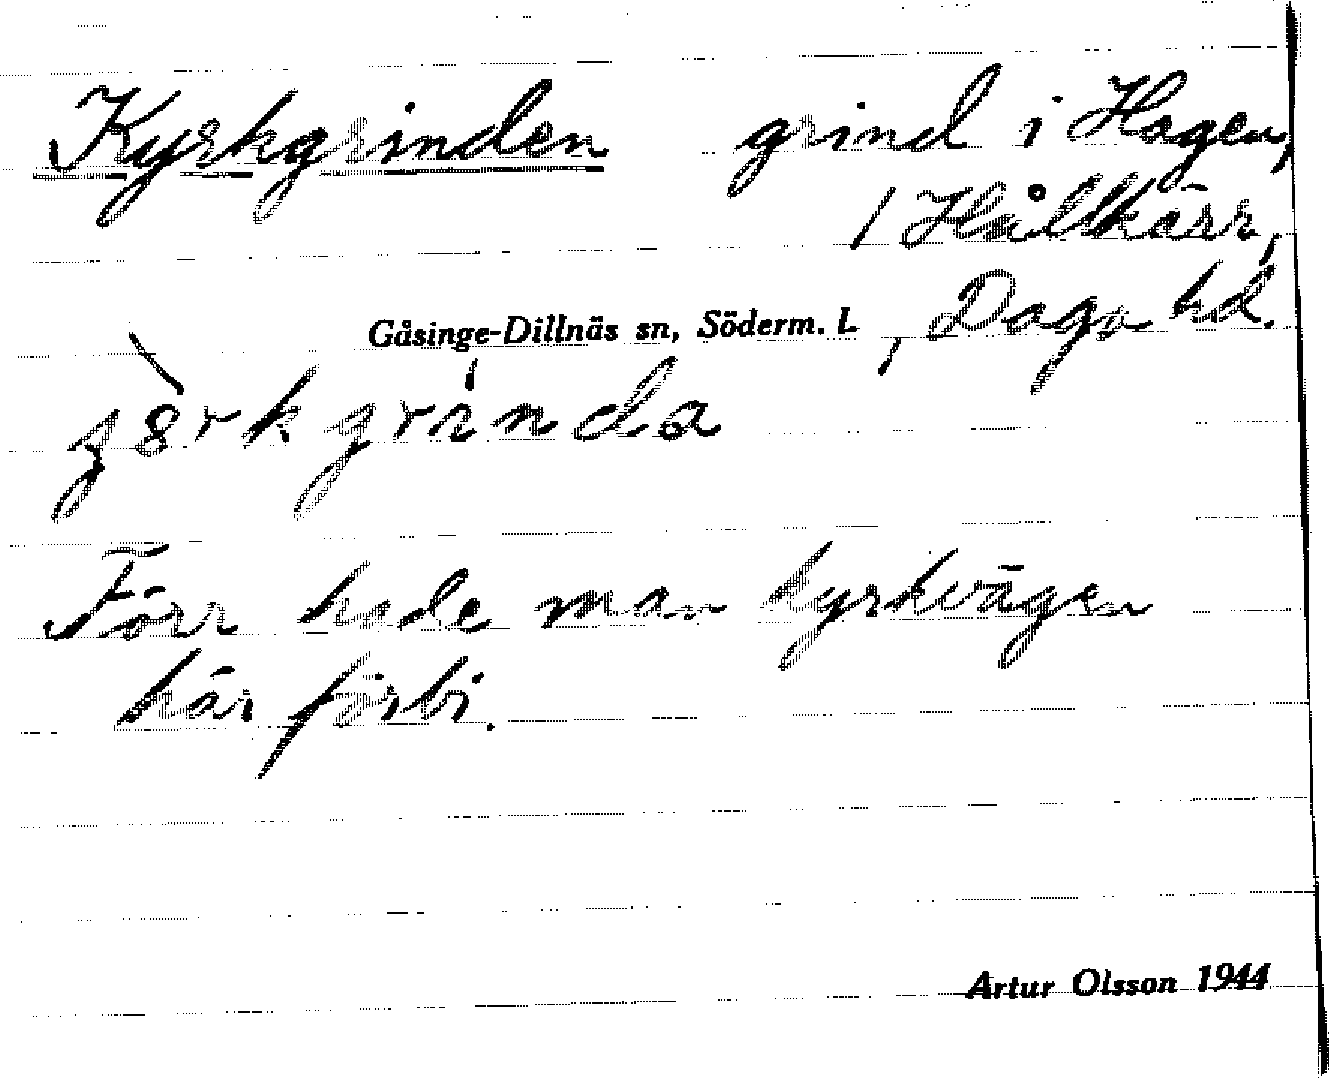 Kyrkgrinden grind i Hagen,
/ Hålkärr,
Gåsinge-Dillnäs sn, Söderm. L , Daga hd.
Förr hade man kyrkvägen
här förbi.
Artur Olsson 1944